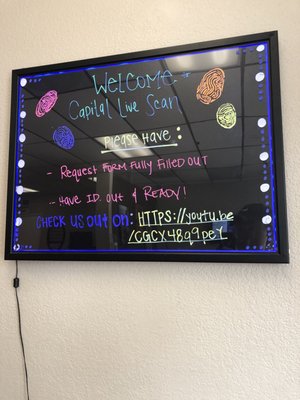 WELCOME to
Capital Live Scan
please Have:
- Request Form Fully Filled OUT
- Have I.D. out & READY!
CHECK US OUT ON: HTTPS://youtu.be
/CGCX48q9peY